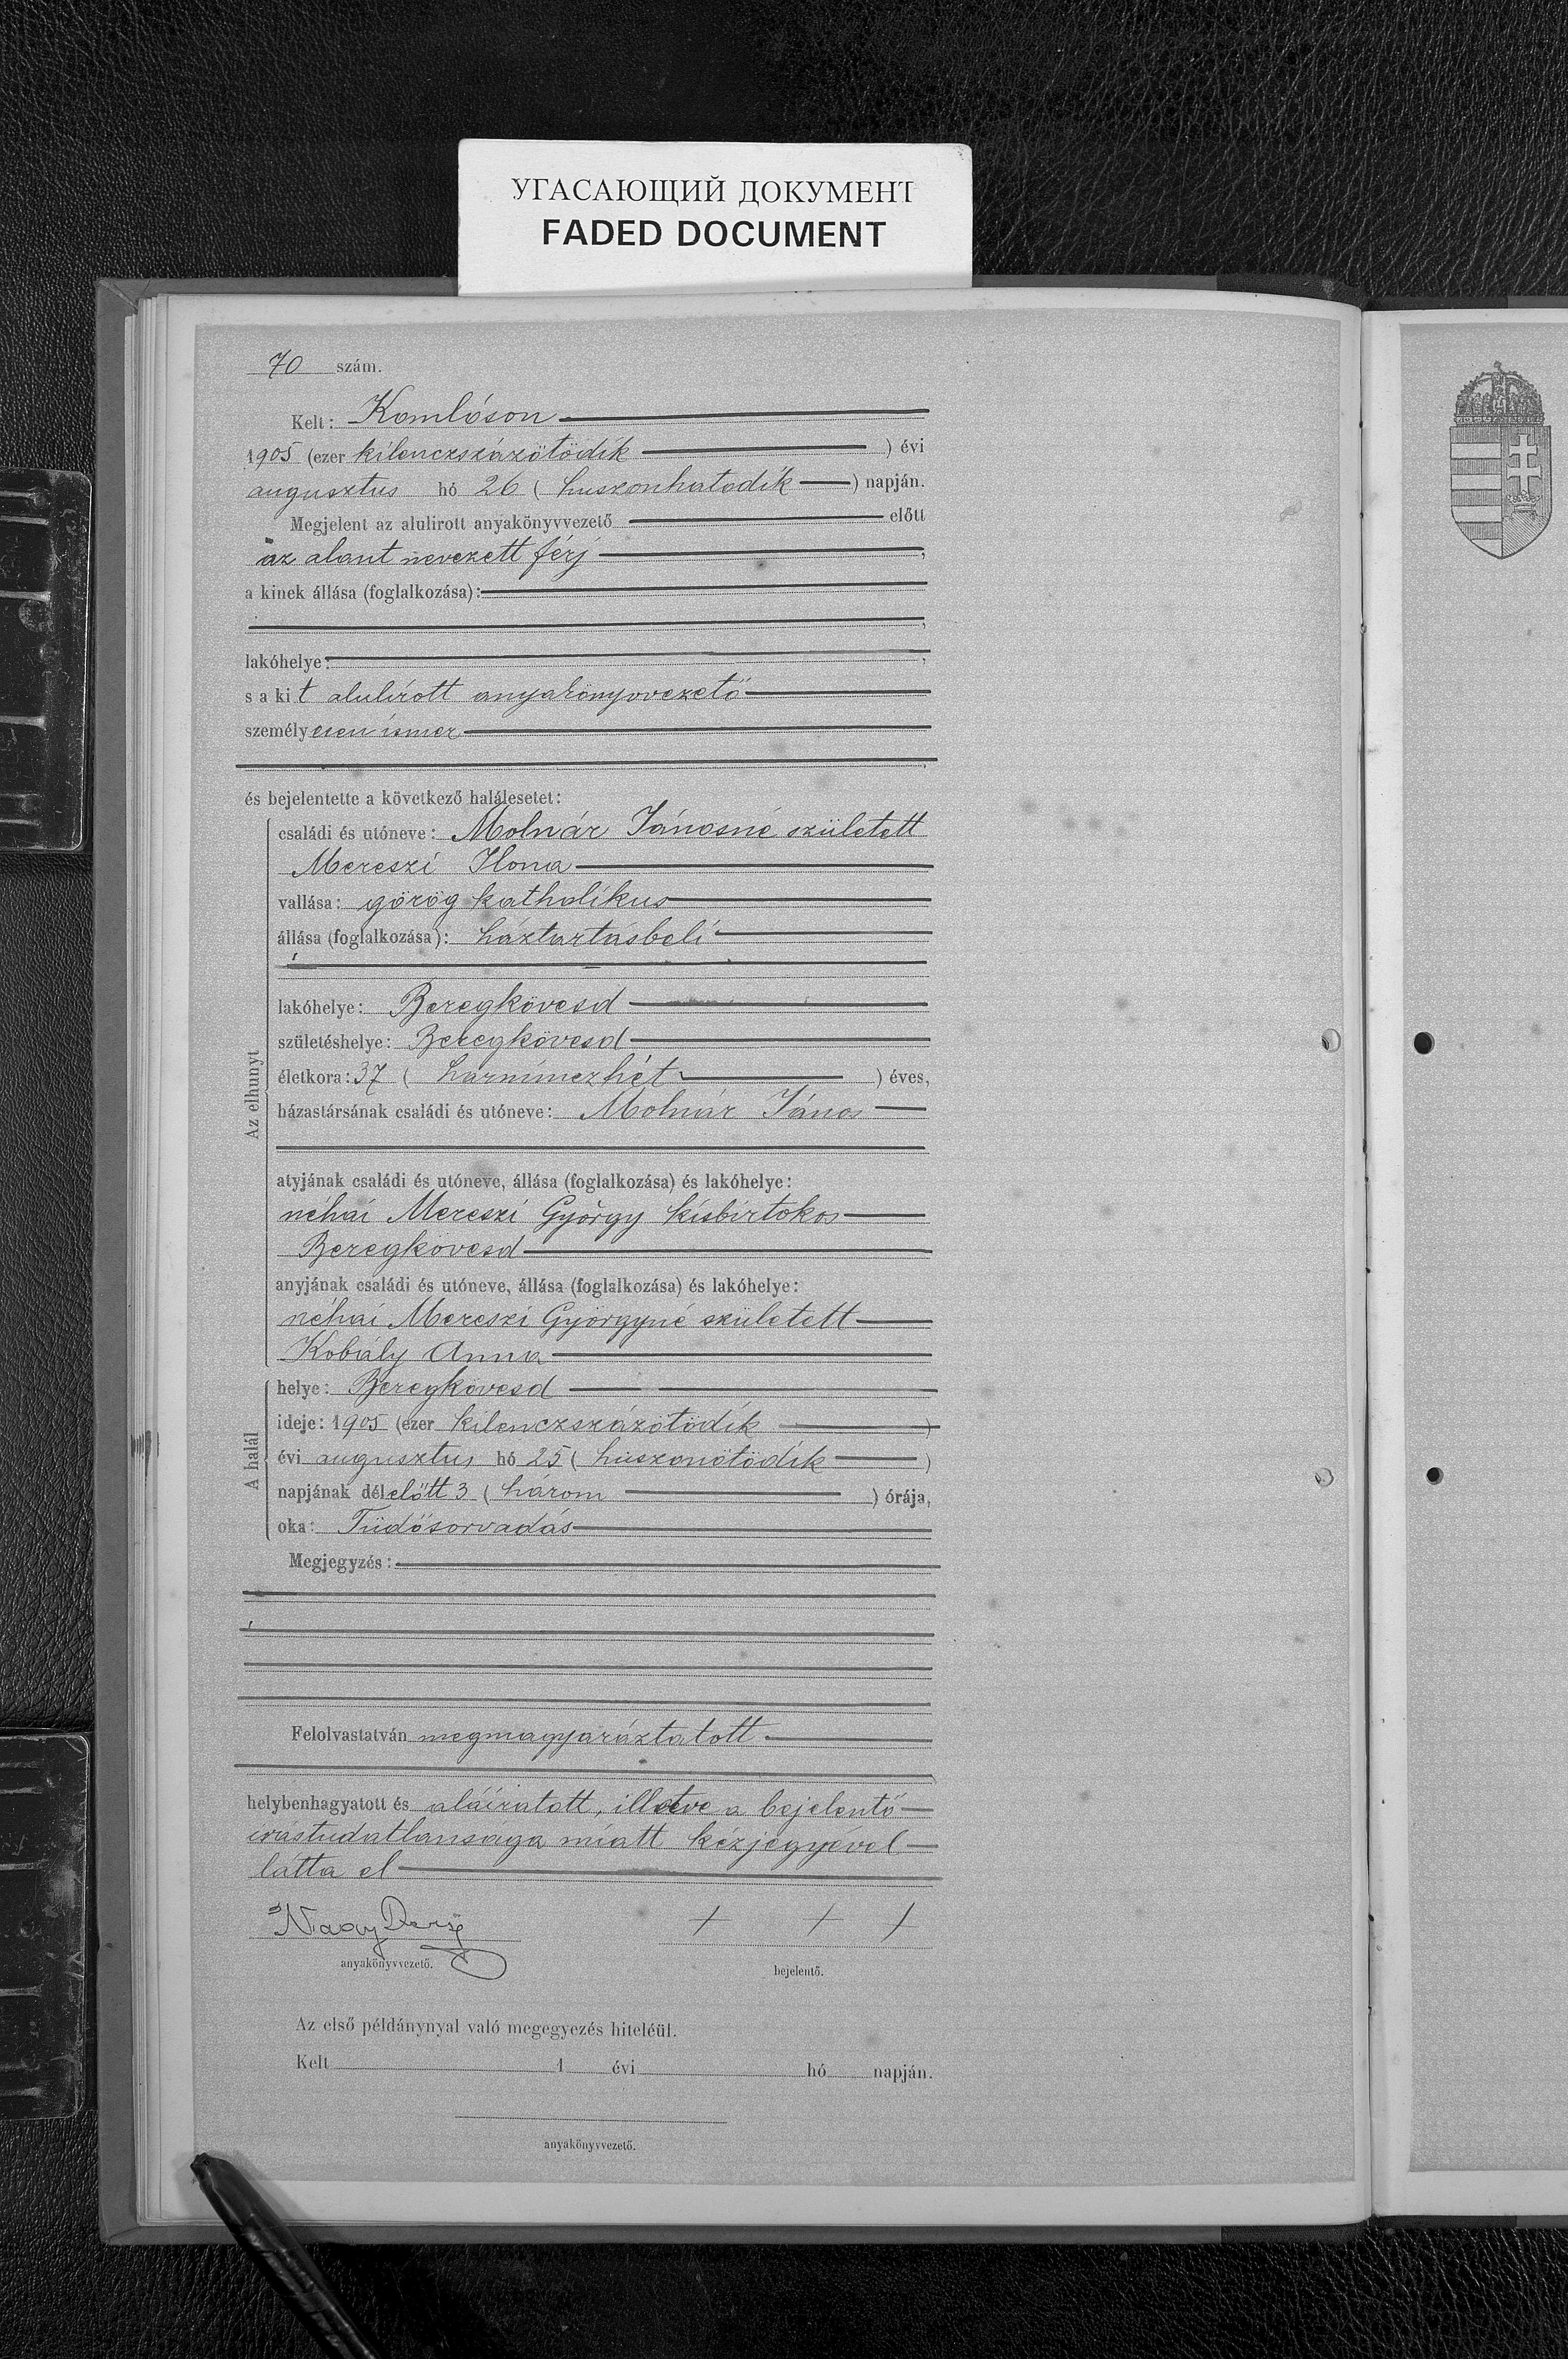 УГАСАЮЩИЙ ДОКУМЕНТ
FADED DOCUMENT
70 szám.
Kelt: Komlóson
1905 (ezer kilenczszázötödik ) évi
augusztus hó 26 ( huszonhatodik ) napján.
Megjelent az alulirott anyakönyvvezető előtt
az alant nevezett férj ,
a kinek állása (foglalkozása):
,
lakóhelye: ,
s a kit alulírott anyakönyvvezető
személyesen ismer
és bejelentette a következő halálesetet:
Az elhunyt
családi és utóneve: Molnár Jánosné született
Mereszi Ilona
vallása: görög katholikus
állása (foglalkozása): háztartásbeli
lakóhelye: Beregkövesd
születéshelye: Beregkövesd
életkora: 37 ( harminczhét ) éves,
házastársának családi és utóneve: Molnár János
atyjának családi és utóneve, állása (foglalkozása) és lakóhelye:
néhai Mereszi György kisbirtokos
Beregkövesd
anyjának családi és utóneve, állása (foglalkozása) és lakóhelye:
néhai Mereszi Györgyné született
Kobály Anna
A halál
helye: Beregkövesd
ideje: 1905 (ezer kilenczszázötödik )
évi augusztus hó 25 ( huszonötödik )
napjának délelőtt 3 ( három ) órája,
oka: Tüdősorvadás
Megjegyzés:
Felolvastatván megmagyaráztatott
helybenhagyatott és aláíratott, illetve a bejelentő
írástudatlansága miatt kézjegyével
látta el
Nagy + + +
anyakönyvvezető. bejelentő.
Az első példánynyal való megegyezés hiteléül.
Kelt 1 évi hó napján.
anyakönyvvezető.